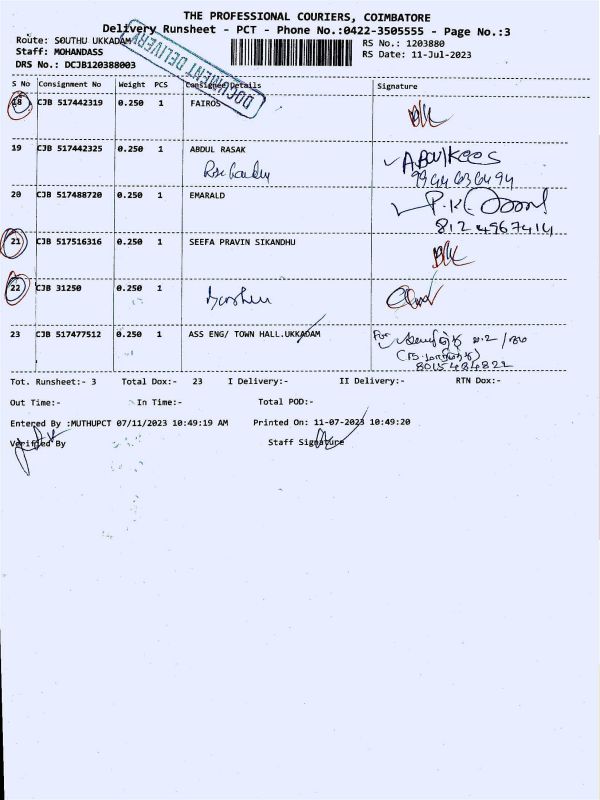 THE PROFESSIONAL COURIERS, COIMBATORE
Delivery Runsheet - PCT - Phone No.:0422-3505555 - Page No.:3
Route: SOUTHU UKKADAM
RS No.: 1203880
Staff: MOHANDASS
RS Date: 11-Jul-2023
DRS No.: DCJB120388003
DOCUMENT DELIVERY
S No Consignment No Weight PCS Consignee Details Signature
18 CJB 517442319 0.250 1 FAIROS
19 CJB 517442325 0.250 1 ABDUL RASAK
20 CJB 517488720 0.250 1 EMARALD
8124967414
21 CJB 517516316 0.250 1 SEEFA PRAVIN SIKANDHU
22 CJB 31250 0.250 1
23 CJB 517477512 0.250 1 ASS ENG/ TOWN HALL.UKKADAM
For
Tot. Runsheet:- 3 Total Dox:- 23 I Delivery:- II Delivery:- RTN Dox:-
Out Time:- In Time:- Total POD:-
Entered By :MUTHUPCT 07/11/2023 10:49:19 AM Printed On: 11-07-2023 10:49:20
Verified By Staff Signature